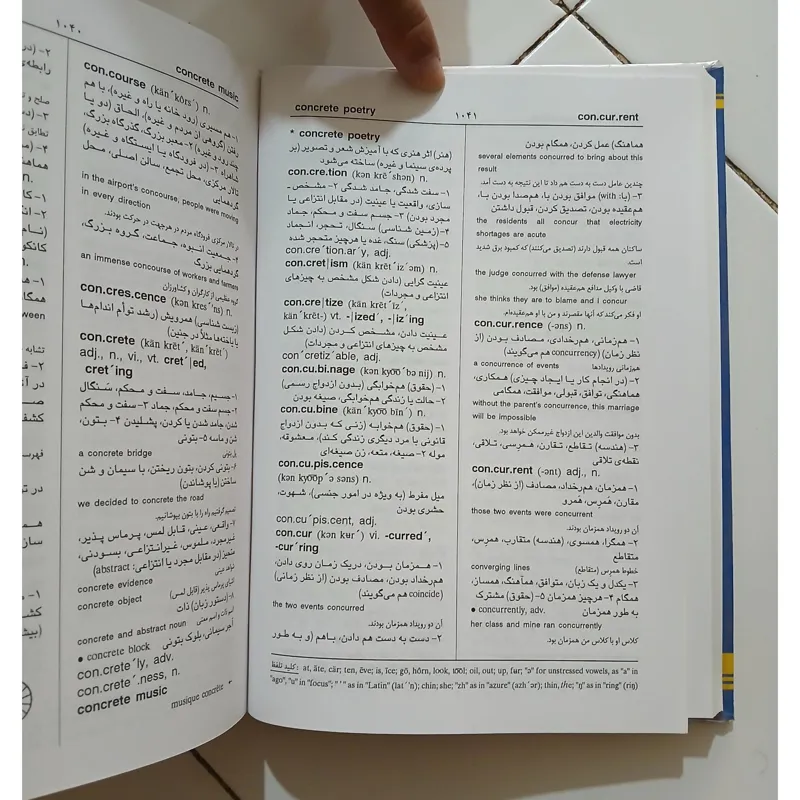 ۱۰۴۰
concrete music
con.course (kän´kôrs´) n.
۱- هم مسیری (رود خانه یا راه و غیره)، با هم
رفتن (گروهی از مردم و غیره)، الحاق (دو یا
چند رود و غیره) ۲- معبر بزرگ، گذرگاه بزرگ،
شاهراه ۳- (در فرودگاه یا ایستگاه و غیره)
تالار مرکزی، محل تجمع، سالن اصلی، محل
گردهمایی
in the airport's concourse, people were moving
in every direction
در تالار مرکزی فرودگاه مردم در هرجهت در حرکت بودند.
۴- جمعیت انبوه، جماعت، گروه بزرگ،
گردهمایی بزرگ
an immense concourse of workers and farmers
گروه عظیمی از کارگران و کشاورزان
con.cres.cence (kən kres´´ns) n.
(زیست شناسی) همرویش (رشد توأم اندام‌ها
یا یاخته‌ها مثلاً در جنین)
con.crete (kän krēt´, kän´krēt´)
adj., n., vi., vt. cret´|ed,
cret´ing
۱- جسیم، جامد، سفت و محکم، سنگال
۲- جسم سفت و محکم، جماد ۳- سفت و محکم
شدن، جامد شدن یا کردن، پشلیدن ۴- بتون،
شن و ماسه ۵- بتونی
a concrete bridge
پل بتونی
۶- بتونی کردن، بتون ریختن، با سیمان و شن
ساختن (یا پوشاندن)
we decided to concrete the road
تصمیم گرفتیم راه را با بتون بپوشانیم.
۷- واقعی، عینی، قابل لمس، پرماس پذیر،
غیرمجرد، ملموس، غیرانتزاعی، بسودنی،
متحیز (در مقابل مجرد یا انتزاعی: abstract)
concrete evidence
شواهد عینی
concrete object
اشیای پرماس پذیر (قابل لمس)
۸- (دستور زبان) ذات
concrete and abstract noun
اسم ذات و اسم معنی
● concrete block آجر سیمانی، بلوک بتونی
con.crete´ly, adv.
con.crete´.ness, n.
concrete music
musique concrète
concrete poetry
۱۰۴۱
con.cur.rent
* concrete poetry
(هنر) اثر هنری که با آمیزش شعر و تصویر (بر
پرده‌ی سینما و غیره) ساخته می‌شود
con.cre.tion (kən krē´shən) n.
۱- سفت شدگی، جامد شدگی ۲- مشخص ـ
سازی، واقعیت یا عینیت (در مقابل انتزاعی یا
مجرد بودن) ۳- جسم سفت و محکم، جماد
۴- (زمین شناسی) سنگال، تحجر، انجماد
۵- (پزشکی) سنگ، غده یا هرچیز متحجر شده
con.cre´tion.ar´y, adj.
con.cret|ism (kän krēt´iz´əm) n.
عینیت گرایی (دادن شکل مشخص به چیزهای
انتزاعی و مجردات)
con.cre|tize (kän krēt´īz´,
kän´krēt-) vt. -|ized´, -|iz´ing
عینیت دادن، مشخص کردن (دادن شکل
مشخص به چیزهای انتزاعی و مجردات)
con´cretiz´able, adj.
con.cu.bi.nage (kən kyoo´bə nij) n.
۱- (حقوق) هم‌خوابگی (بدون ازدواج رسمی)
۲- حالت یا زندگی هم‌خوابگی، صیغه بودن
con.cu.bine (kän´kyoo bīn´) n.
۱- (حقوق) هم‌خوابه (زنی که بدون ازدواج
قانونی با مرد دیگری زندگی کند)، معشوقه،
موله ۲- صیغه، متعه، زن صیغه‌ای
con.cu.pis.cence
(kən kyoop´ə səns) n.
میل مفرط (به ویژه در امور جنسی)، شهوت،
حشری بودن
con.cu´pis.cent, adj.
con.cur (kən kʉr´) vi. -curred´,
-cur´ring
۱- همزمان بودن، دریک زمان روی دادن،
هم‌رخداد بودن، مصادف بودن (از نظر زمانی)
(coincide هم می‌گویند)
the two events concurred
آن دو رویداد همزمان بودند.
۲- دست به دست هم دادن، باهم (و به طور
هماهنگ) عمل کردن، همگام بودن
several elements concurred to bring about this
result
چندین عامل دست به دست هم داد تا این نتیجه به دست آمد.
۳- (با: with) موافق بودن با، هم‌صدا بودن با،
هم‌عقیده بودن، تصدیق کردن، قبول داشتن
the residents all concur that electricity
shortages are acute
ساکنان همه قبول دارند (تصدیق می‌کنند) که کمبود برق شدید
است.
the judge concurred with the defense lawyer
قاضی با وکیل مدافع هم‌عقیده (موافق) بود.
she thinks they are to blame and I concur
او فکر می‌کند که آنها مقصرند و من با او هم‌عقیده‌ام.
con.cur.rence (-əns) n.
۱- هم‌زمانی، هم‌رخدادی، مصادف بودن (از
نظر زمان) (concurrency هم می‌گویند)
a concurrence of events
هم‌زمانی رویدادها
۲- (در انجام کار یا ایجاد چیزی) همکاری،
هماهنگی، توافق، قبول، موافقت، همگامی
without the parent's concurrence, this marriage
will be impossible
بدون موافقت والدین این ازدواج غیرممکن خواهد بود.
۳- (هندسه) تقاطع، تقارن، همرسی، تلاقی،
نقطه‌ی تلاقی
con.cur.rent (-ənt) adj., n.
۱- همزمان، هم‌رخداد، مصادف (از نظر زمان)،
مقارن، همرس، همرو
those two events were concurrent
آن دو رویداد همزمان بودند.
۲- همگرا، همسوی، (هندسه) متقارب، همرس،
متقاطع
converging lines
خطوط همرس (متقاطع)
۳- یکدل و یک زبان، متوافق، هماهنگ، همساز،
همگام ۴- هرچیز همزمان ۵- (حقوق) مشترک
● concurrently, adv. به طور همزمان
her class and mine ran concurrently
کلاس او با کلاس من همزمان بود.
کلید تلفظ: at, āte, cär; ten, ēve; is, īce; gō, hôrn, look, tool; oil, out; up, fʉr; "ə" for unstressed vowels, as "a" in
"ago", "u" in "focus"; "´" as in "Latin" (lat´´n); chin; she; "zh" as in "azure" (azh´ər); thin, the; "ŋ" as in "ring" (riŋ)